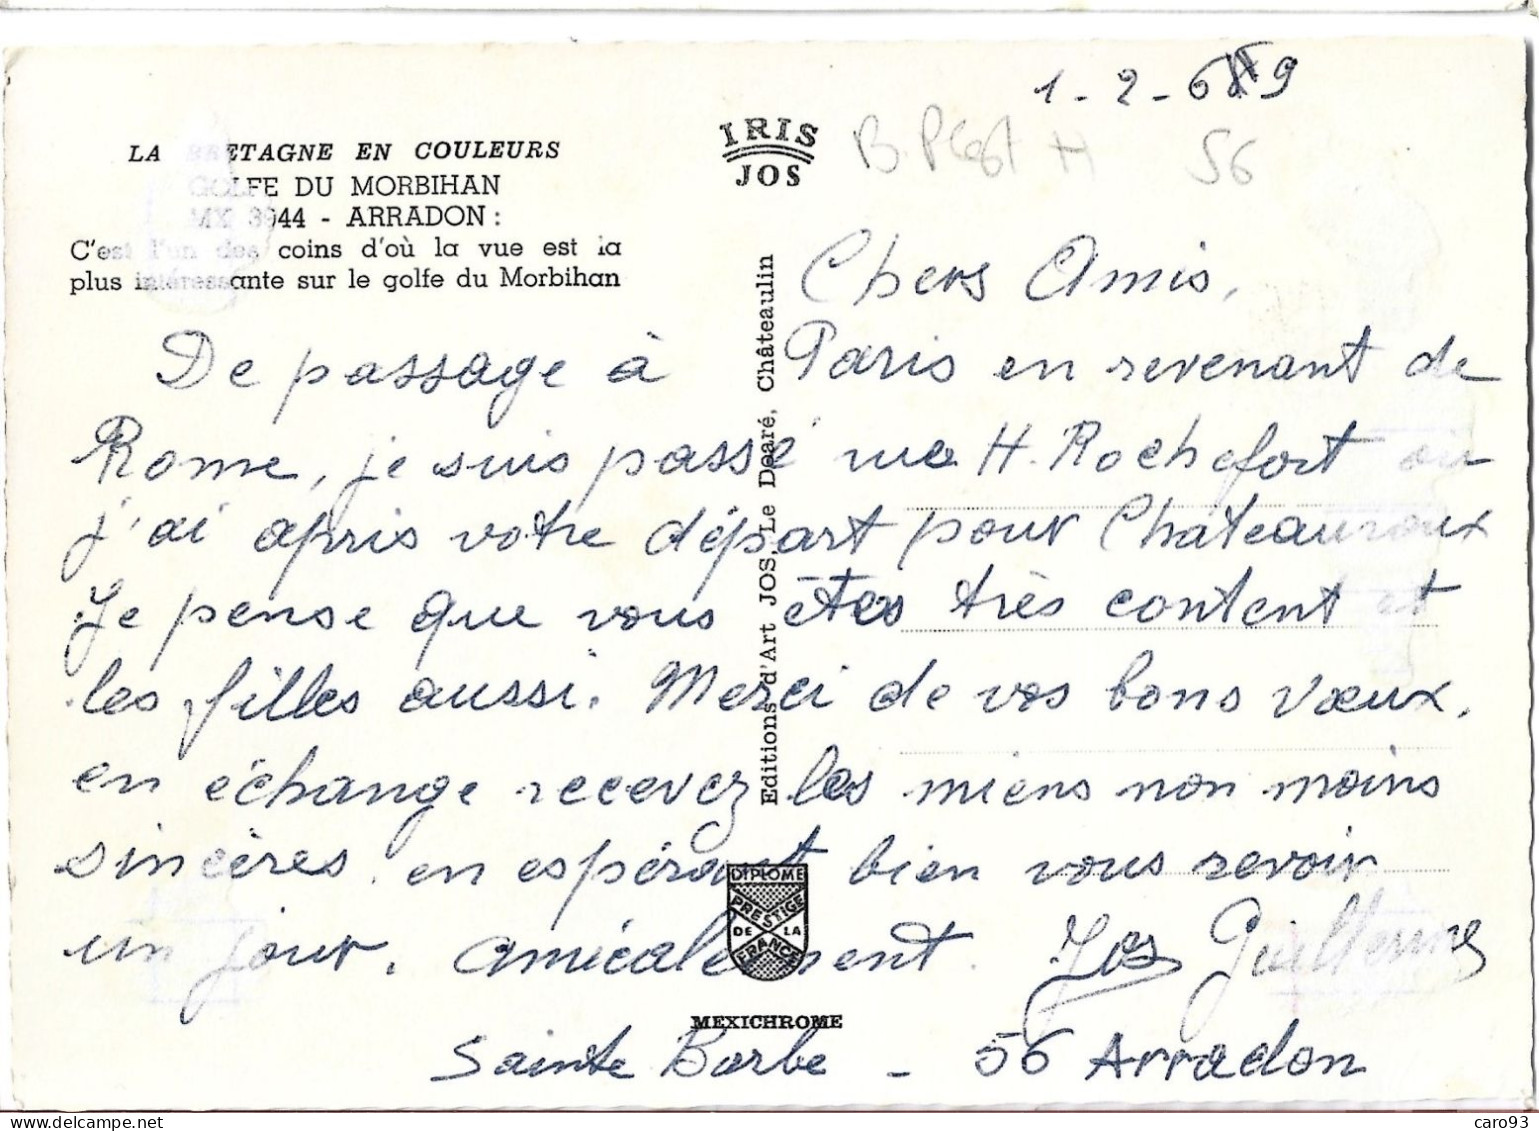 1-2-69
IRIS
JOS
56
LA BRETAGNE EN COULEURS
GOLFE DU MORBIHAN
MX 3944 - ARRADON :
C'est l'un des coins d'où la vue est la
plus intéressante sur le golfe du Morbihan
Editions d'Art JOS, Le Doaré, Châteaulin
Chers Amis,
De passage à Paris en revenant de
Rome, je suis passé rue H. Rochefort où
j'ai apris votre départ pour Châteauroux
Je pense que vous êtes très content et
les filles aussi. Merci de vos bons vœux,
en échange recevez les miens non moins
sincères. en espérant bien vous revoir
un jour. amicalement. Jos
DIPLOME
PRESTIGE
DE LA
FRANCE
MEXICHROME
Sainte Barbe - 56 Arradon
caro93